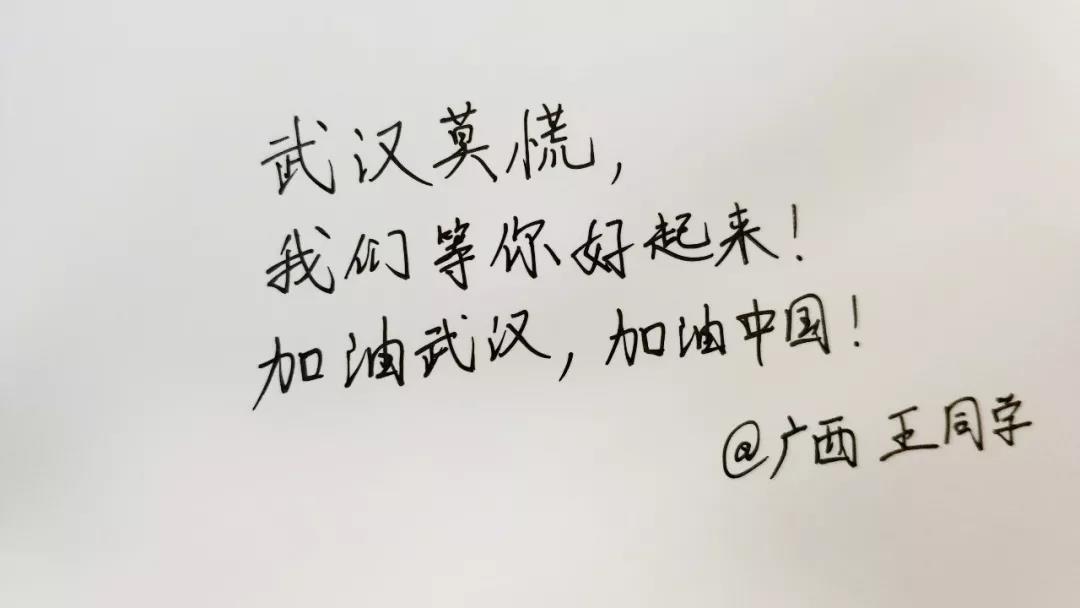 武汉莫慌,
我们等你好起来!
加油武汉,加油中国!
@广西 王同学